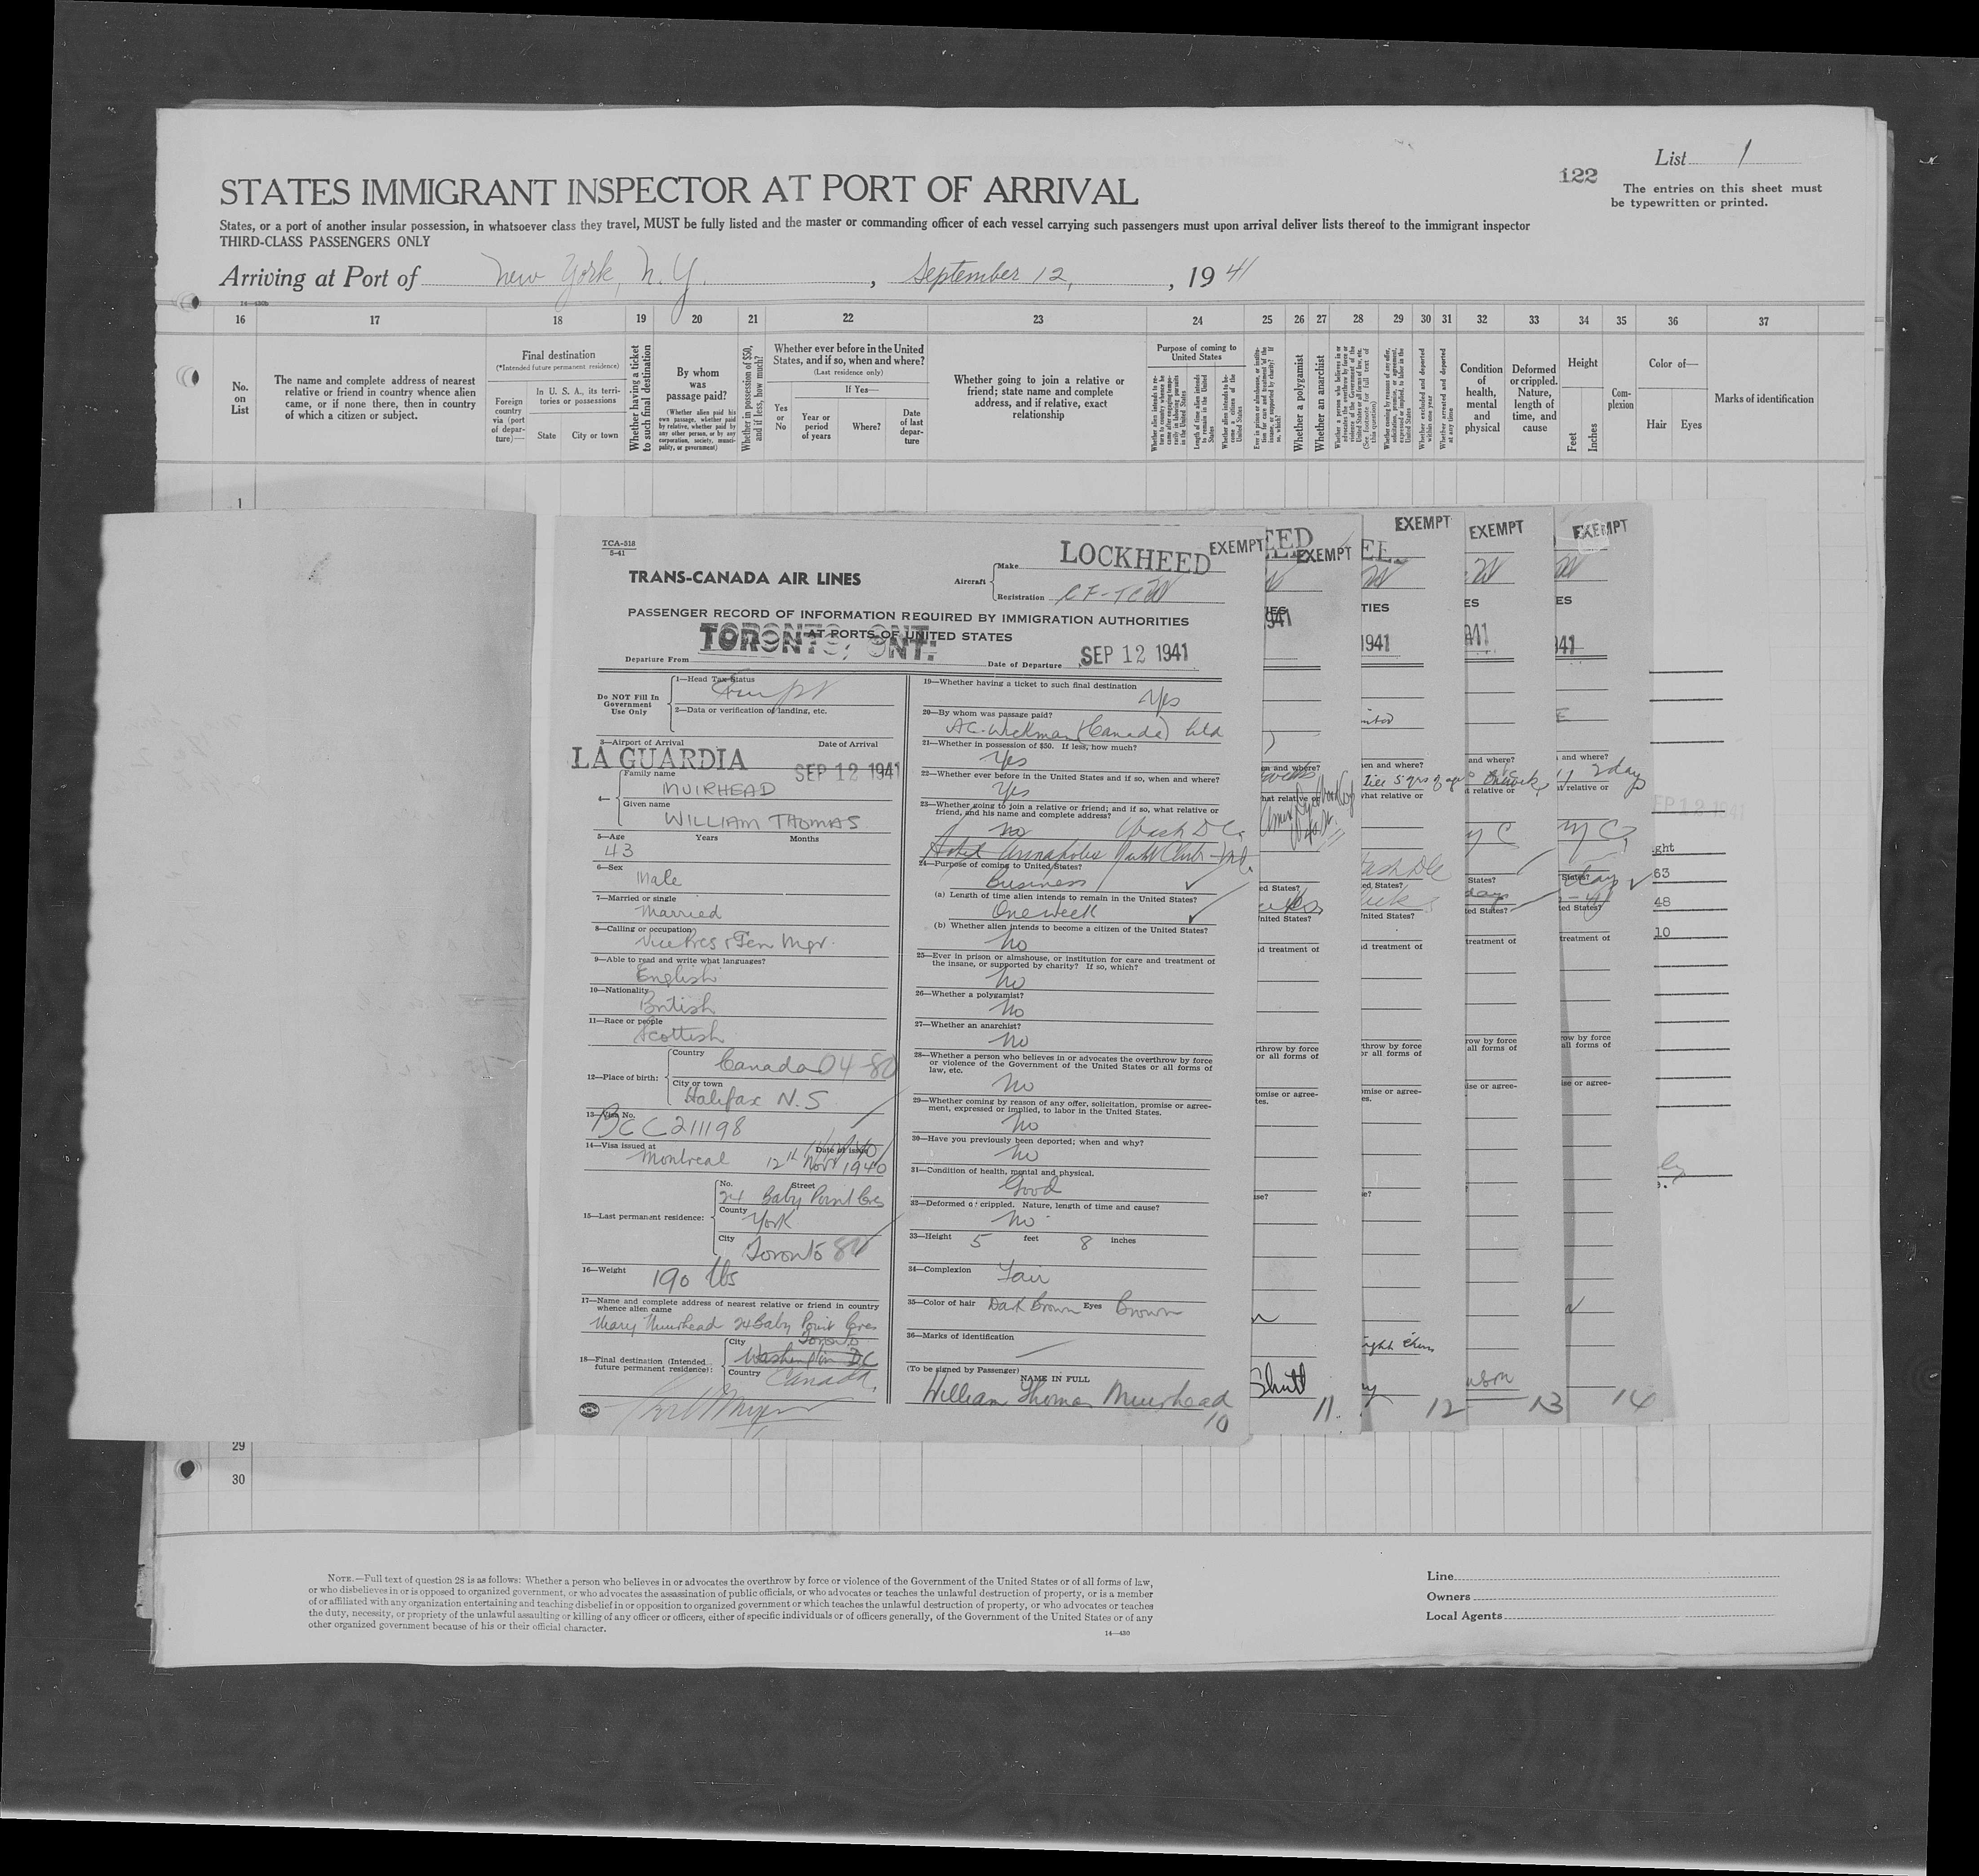 List 1
122
The entries on this sheet must
be typewritten or printed.
STATES IMMIGRANT INSPECTOR AT PORT OF ARRIVAL
States, or a port of another insular possession, in whatsoever class they travel, MUST be fully listed and the master or commanding officer of each vessel carrying such passengers must upon arrival deliver lists thereof to the immigrant inspector
THIRD-CLASS PASSENGERS ONLY
Arriving at Port of New York, N.Y. , September 12, , 1941
14—430b
16 17 18 19 20 21 22 23 24 25 26 27 28 29 30 31 32 33 34 35 36 37
No.
on
List
The name and complete address of nearest
relative or friend in country whence alien
came, or if none there, then in country
of which a citizen or subject.
Final destination
(*Intended future permanent residence)
Foreign
country
via (port
of depar-
ture)—
In U. S. A., its terri-
tories or possessions
State City or town
Whether having a ticket
to such final destination
By whom
was
passage paid?
(Whether alien paid his
own passage, whether paid
by relative, whether paid by
any other person, or by any
corporation, society, munici-
pality, or government)
Whether in possession of $50,
and if less, how much?
Whether ever before in the United
States, and if so, when and where?
(Last residence only)
If Yes—
Yes
or
No
Year or
period
of years
Where?
Date
of last
depar-
ture
Whether going to join a relative or
friend; state name and complete
address, and if relative, exact
relationship
Purpose of coming to
United States
Whether alien intends to re-
turn to country whence he
came after engaging tempo-
rarily in laboring pursuits
in the United States
Length of time alien intends
to remain in the United
States
Whether alien intends to be-
come a citizen of the
United States
Ever in prison or almshouse, or institu-
tion for care and treatment of the
insane, or supported by charity? If
so, which?
Whether a polygamist
Whether an anarchist
Whether a person who believes in or
advocates the overthrow by force or
violence of the Government of the
United States or all forms of law, etc.
(See footnote for full text of
this question)
Whether coming by reason of any offer,
solicitation, promise, or agreement,
expressed or implied, to labor in the
United States
Whether excluded and deported
within one year
Whether arrested and deported
at any time
Condition
of
health,
mental
and
physical
Deformed
or crippled.
Nature,
length of
time, and
cause
Height
Feet
Inches
Com-
plexion
Color of—
Hair Eyes
Marks of identification
1
TCA-518
5-41
TRANS-CANADA AIR LINES
Aircraft
Make LOCKHEED
EXEMPT
Registration CF-TCW
PASSENGER RECORD OF INFORMATION REQUIRED BY IMMIGRATION AUTHORITIES
AT PORTS OF UNITED STATES
Departure From TORONTO, ONT. Date of Departure SEP 12 1941
Do NOT Fill In
Government
Use Only
1—Head Tax Status
2—Data or verification of landing, etc.
3—Airport of Arrival Date of Arrival
LA GUARDIA SEP 12 1941
4—
Family name
MUIRHEAD
Given name
WILLIAM THOMAS
5—Age Years Months
43
6—Sex
Male
7—Married or single
Married
8—Calling or occupation
Vice Pres & Gen Mgr.
9—Able to read and write what languages?
English
10—Nationality
British
11—Race or people
Scottish
12—Place of birth:
Country Canada 04-80
City or town
Halifax N.S
13—Visa No.
BCC 211198
14—Visa issued at Date of issue
Montreal 12th Nov 1940
15—Last permanent residence:
No. Street
24 Baby Point Cres
County York
City Toronto
16—Weight 190 lbs
17—Name and complete address of nearest relative or friend in country
whence alien came
Mary Muirhead 24 Baby Point Cres
18—Final destination (Intended
future permanent residence):
City Toronto
Washington DC
Country Canada
19—Whether having a ticket to such final destination
Yes
20—By whom was passage paid?
A.C. Wickman (Canada) Ltd
21—Whether in possession of $50. If less, how much?
Yes
22—Whether ever before in the United States and if so, when and where?
Yes
23—Whether going to join a relative or friend; and if so, what relative or
friend, and his name and complete address?
no Wash D.C.
Hotel Annapolis Yacht Club
24—Purpose of coming to United States?
Business
(a) Length of time alien intends to remain in the United States?
One week
(b) Whether alien intends to become a citizen of the United States?
No
25—Ever in prison or almshouse, or institution for care and treatment of
the insane, or supported by charity? If so, which?
No
26—Whether a polygamist?
No
27—Whether an anarchist?
No
28—Whether a person who believes in or advocates the overthrow by force
or violence of the Government of the United States or all forms of
law, etc.
No
29—Whether coming by reason of any offer, solicitation, promise or agree-
ment, expressed or implied, to labor in the United States.
No
30—Have you previously been deported; when and why?
No
31—Condition of health, mental and physical.
Good
32—Deformed or crippled. Nature, length of time and cause?
No
33—Height 5 feet 8 inches
34—Complexion Fair
35—Color of hair Dark Brown Eyes Brown
36—Marks of identification
(To be signed by Passenger)
NAME IN FULL
William Thomas Muirhead
10
EXEMPT
1941
11.
EXEMPT
1941
12
EXEMPT
13
EXEMPT
14
SEP 12 1941
63
48
10
29
30
NOTE.—Full text of question 28 is as follows: Whether a person who believes in or advocates the overthrow by force or violence of the Government of the United States or of all forms of law,
or who disbelieves in or is opposed to organized government, or who advocates the assassination of public officials, or who advocates or teaches the unlawful destruction of property, or is a member
of or affiliated with any organization entertaining and teaching disbelief in or opposition to organized government or which teaches the unlawful destruction of property, or who advocates or teaches
the duty, necessity, or propriety of the unlawful assaulting or killing of any officer or officers, either of specific individuals or of officers generally, of the Government of the United States or of any
other organized government because of his or their official character.
14—430
Line
Owners
Local Agents